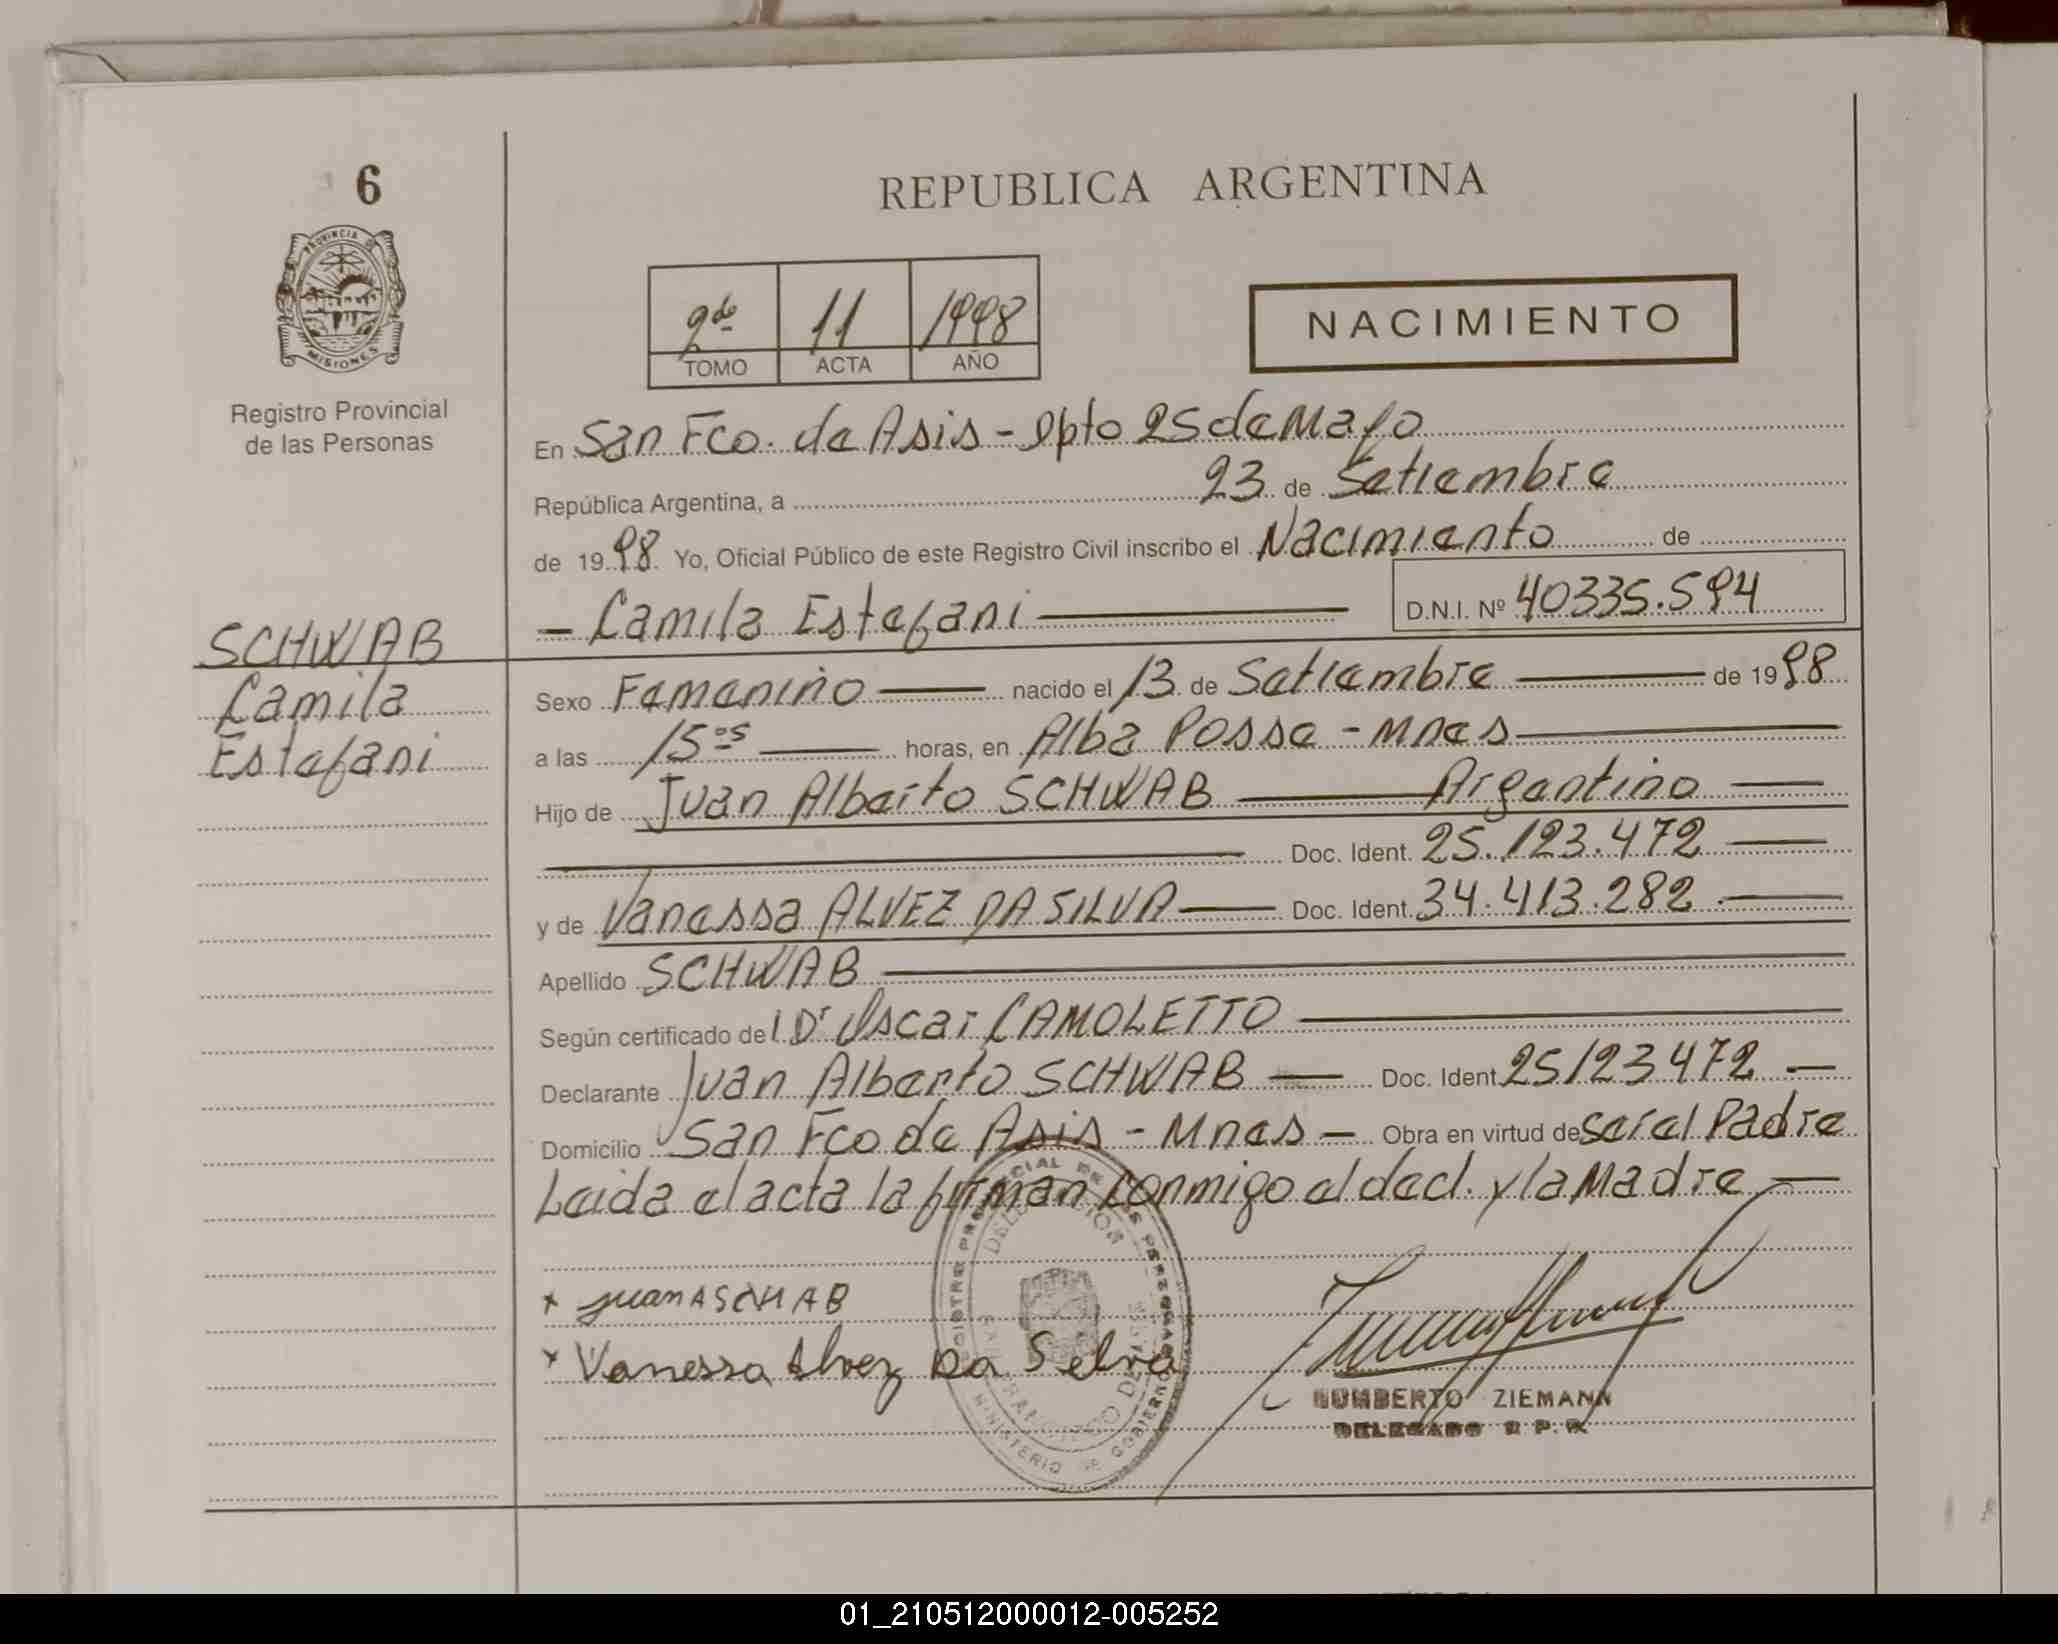 6
REPUBLICA ARGENTINA
PROVINCIA DE
MISIONES
Registro Provincial
de las Personas
2do 11 1998
TOMO ACTA AÑO
NACIMIENTO
En San Fco. de Asis - Dpto 25 de Mayo
República Argentina, a 23 de Setiembre
de 1998 Yo, Oficial Público de este Registro Civil inscribo el Nacimiento de
- Camila Estefani D.N.I. Nº 40335.594
SCHWAB
Camila
Estefani
Sexo Femenino nacido el 13 de Setiembre de 1998
a las 15os horas, en Alba Posse - Mnes
Hijo de Juan Alberto SCHWAB Argentino
Doc. Ident. 25.123.472
y de Vanessa ALVEZ DA SILVA Doc. Ident. 34.413.282.
Apellido SCHWAB
Según certificado de Dr Oscar CAMOLETTO
Declarante Juan Alberto SCHWAB Doc. Ident 25123472
Domicilio San Fco de Asis - Mnes Obra en virtud de ser el Padre
Leida el acta la firman conmigo el decl. y la Madre
x juan A SCHAB
x Vanessa Alvez Da Selva
HUMBERTO ZIEMANN
DELEGADO R.P.P.
MINISTERIO DE GOBIERNO
01_210512000012-005252